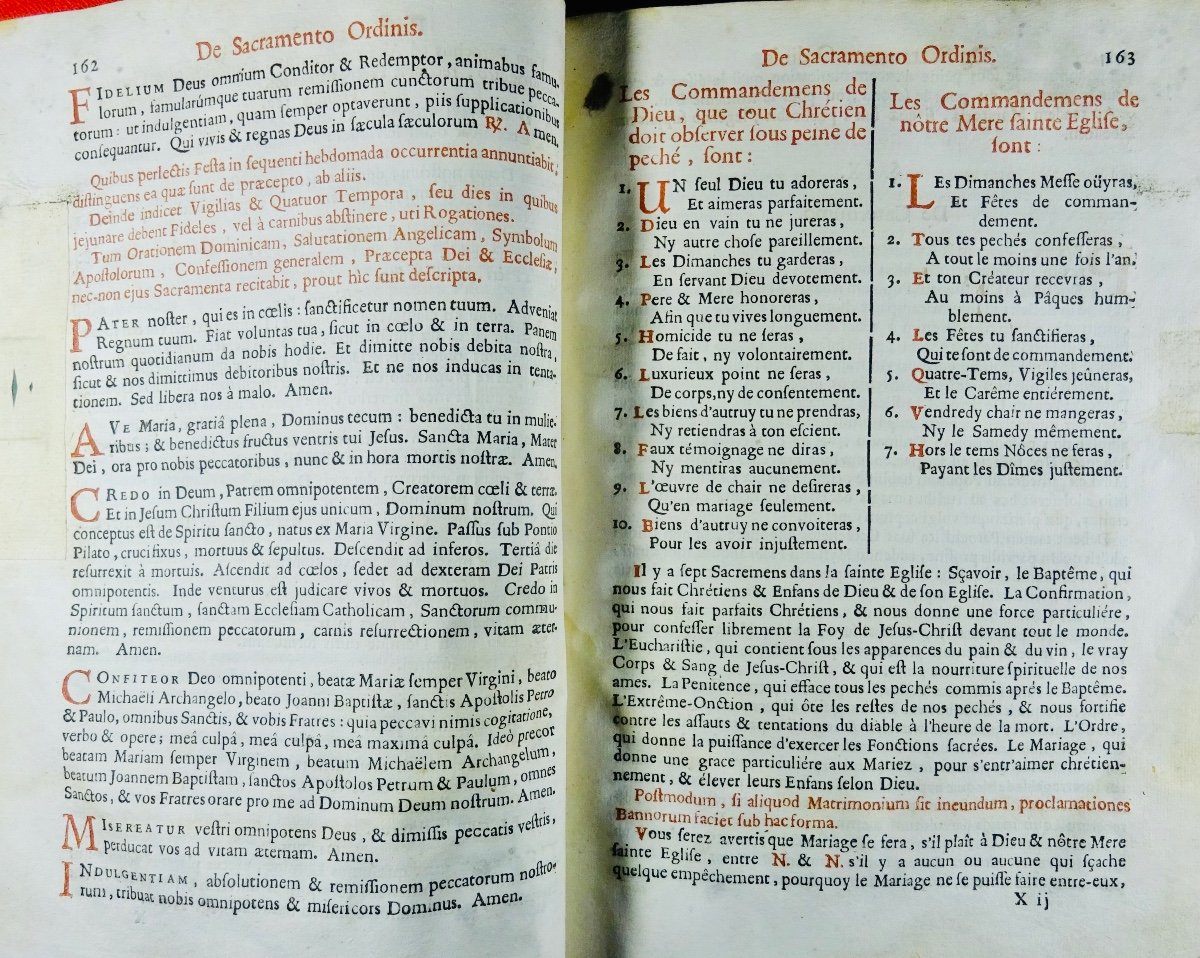 162
De Sacramento Ordinis.
FIDELIUM Deus omnium Conditor & Redemptor, animabus famu-
lorum, famularúmque tuarum remiſſionem cunctorum tribue pecca-
torum: ut indulgentiam, quam ſemper optaverunt, piis ſupplicationibus
conſequantur. Qui vivis & regnas Deus in ſæcula ſæculorum ℟. Amen.
Quibus perlectis Feſta in ſequenti hebdomada occurrentia annuntiabit,
diſtinguens ea quæ ſunt de præcepto, ab aliis.
Deinde indicet Vigilias & Quatuor Tempora, ſeu dies in quibus
Jejunare debent Fideles, vel à carnibus abſtinere, uti Rogationes.
Tum Orationem Dominicam, Salutationem Angelicam, Symbolum
Apoſtolorum, Confeſſionem generalem, Præcepta Dei & Eccleſiæ,
nec-non ejus Sacramenta recitabit, prout hìc ſunt deſcripta.
PATER noſter, qui es in cœlis: ſanctificetur nomen tuum. Adveniat
Regnum tuum. Fiat voluntas tua, ſicut in cœlo & in terra. Panem
noſtrum quotidianum da nobis hodie. Et dimitte nobis debita noſtra,
ſicut & nos dimittimus debitoribus noſtris. Et ne nos inducas in tenta-
tionem. Sed libera nos à malo. Amen.
AVE Maria, gratiâ plena, Dominus tecum: benedicta tu in mulie-
ribus; & benedictus fructus ventris tui Jeſus. Sancta Maria, Mater
Dei, ora pro nobis peccatoribus, nunc & in hora mortis noſtræ. Amen.
CREDO in Deum, Patrem omnipotentem, Creatorem cœli & terræ.
Et in Jeſum Chriſtum Filium ejus unicum, Dominum noſtrum. Qui
conceptus eſt de Spiritu ſancto, natus ex Maria Virgine. Paſſus ſub Pontio
Pilato, crucifixus, mortuus & ſepultus. Deſcendit ad inferos. Tertiâ die
reſurrexit à mortuis. Aſcendit ad cœlos, ſedet ad dexteram Dei Patris
omnipotentis. Inde venturus eſt judicare vivos & mortuos. Credo in
Spiritum ſanctum, ſanctam Eccleſiam Catholicam, Sanctorum commu-
nionem, remiſſionem peccatorum, carnis reſurrectionem, vitam æter-
nam. Amen.
CONFITEOR Deo omnipotenti, beatæ Mariæ ſemper Virgini, beato
Michaëli Archangelo, beato Joanni Baptiſtæ, ſanctis Apoſtolis Petro
& Paulo, omnibus Sanctis, & vobis Fratres: quia peccavi nimis cogitatione,
verbo & opere; meâ culpâ, meâ culpâ, meâ maximâ culpâ. Ideò precor
beatam Mariam ſemper Virginem, beatum Michaëlem Archangelum,
beatum Joannem Baptiſtam, ſanctos Apoſtolos Petrum & Paulum, omnes
Sanctos, & vos Fratres orare pro me ad Dominum Deum noſtrum. Amen.
MISEREATUR veſtri omnipotens Deus, & dimiſſis peccatis veſtris,
perducat vos ad vitam æternam. Amen.
INDULGENTIAM, abſolutionem & remiſſionem peccatorum noſtro-
rum, tribuat nobis omnipotens & miſericors Dominus. Amen.
De Sacramento Ordinis.
163
Les Commandemens de
Dieu, que tout Chrétien
doit obſerver ſous peine de
peché, ſont:
1. UN ſeul Dieu tu adoreras,
Et aimeras parfaitement.
2. Dieu en vain tu ne jureras,
Ny autre choſe pareillement.
3. Les Dimanches tu garderas,
En ſervant Dieu devotement.
4. Pere & Mere honoreras,
Afin que tu vives longuement.
5. Homicide tu ne ſeras,
De fait, ny volontairement.
6. Luxurieux point ne ſeras,
De corps, ny de conſentement.
7. Les biens d'autruy tu ne prendras,
Ny retiendras à ton eſcient.
8. Faux témoignage ne diras,
Ny mentiras aucunement.
9. L'œuvre de chair ne deſireras,
Qu'en mariage ſeulement.
10. Biens d'autruy ne convoiteras,
Pour les avoir injuſtement.
Les Commandemens de
nôtre Mere ſainte Egliſe,
ſont:
1. LEs Dimanches Meſſe oüyras,
Et Fêtes de comman-
dement.
2. Tous tes pechés confeſſeras,
A tout le moins une fois l'an.
3. Et ton Créateur recevras,
Au moins à Pâques hum-
blement.
4. Les Fêtes tu ſanctifieras,
Qui te ſont de commandement.
5. Quatre-Tems, Vigiles jeûneras,
Et le Carême entiérement.
6. Vendredy chair ne mangeras,
Ny le Samedy mêmement.
7. Hors le tems Nôces ne feras,
Payant les Dîmes juſtement.
Il y a ſept Sacremens dans la ſainte Egliſe: Sçavoir, le Baptême, qui
nous fait Chrétiens & Enfans de Dieu & de ſon Egliſe. La Confirmation,
qui nous fait parfaits Chrétiens, & nous donne une force particuliére,
pour confeſſer librement la Foy de Jeſus-Chriſt devant tout le monde.
L'Euchariſtie, qui contient ſous les apparences du pain & du vin, le vray
Corps & Sang de Jeſus-Chriſt, & qui eſt la nourriture ſpirituelle de nos
ames. La Penitence, qui efface tous les pechés commis aprés le Baptême.
L'Extrême-Onction, qui ôte les reſtes de nos pechés, & nous fortifie
contre les aſſauts & tentations du diable à l'heure de la mort. L'Ordre,
qui donne la puiſſance d'exercer les Fonctions ſacrées. Le Mariage, qui
donne une grace particuliére aux Mariez, pour s'entr'aimer chrétien-
nement, & élever leurs Enfans ſelon Dieu.
Poſtmodum, ſi aliquod Matrimonium ſit ineundum, proclamationes
Bannorum faciet ſub hac forma.
Vous ſerez avertis que Mariage ſe fera, s'il plaît à Dieu & nôtre Mere
ſainte Egliſe, entre N. & N. s'il y a aucun ou aucune qui ſçache
quelque empêchement, pourquoy le Mariage ne ſe puiſſe faire entre-eux,
X ij